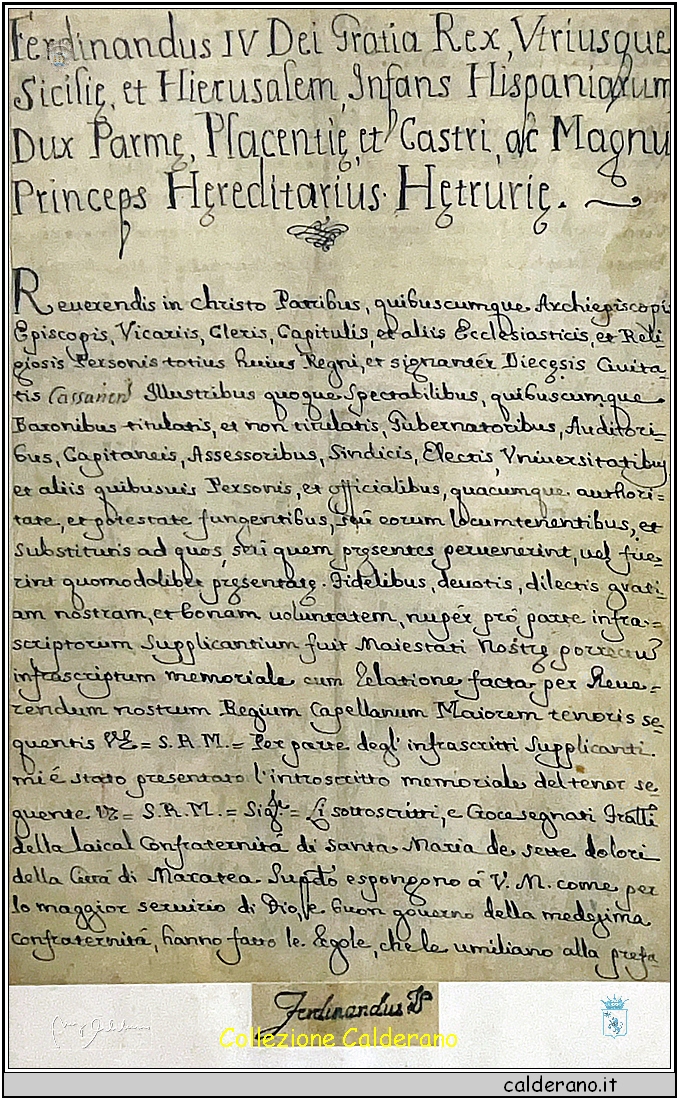 Ferdinandus IV Dei Gratia Rex, Vtriusque
Sicilię, et Hierusalem, Infans Hispaniarum
Dux Parmę, Placentię, et Castri, ac Magnu
Princeps Hęreditarius Hętrurię.
Reuerendis in Christo Patribus, quibuscumque Archiepiscopis
Episcopis, Vicariis, Cleris, Capitulis, et aliis Ecclesiasticis, et Reli-
giosis Personis totius huius Regni, et signantér Diecęsis Ciuita-
tis Cassanen Illustribus quoque Spectabilibus, quibuscumque
Baronibus titulatis, et non titulatis, Gubernatoribus, Auditori-
bus, Capitaneis, Assessoribus, Sindicis, Electis, Vniuersitatibus
et aliis quibusuis Personis, et officialibus, quacumque authori-
tate, et potestate fungentibus, seù eorum locumtenentibus, et
substitutis ad quos, seù quem pręsentes peruenerint, uel fue-
rint quomodolibet pręsentatę. Fidelibus, deuotis, dilectis grati-
am nostram, et bonam uoluntatem, nupér prò parte infra-
scriptorum Supplicantium fuit Maiestati Nostrę porrectu
infrascriptum memoriale cum Relatione facta per Reue-
rendum nostrum Regium Capellanum Maiorem tenoris se-
quentis Vz = S.R.M. = Per parte degl' infrascritti Supplicanti
mi é stato presentato l'introscritto memoriale del tenor se-
guente Vz = S.R.M. = Sig.re = Li sottoscritti, e Crocesegnati Fratelli
della laical Confraternitá di santa Maria de sette dolori
della Cittá di Maratea Supd.o espongono á V. M. come per
lo maggior seruizio di Dio, e buon gouerno della medesima
Confraternitá, hanno fatto le Regole, che le umiliano alla prefa-
Ferdinandus
Collezione Calderano
calderano.it